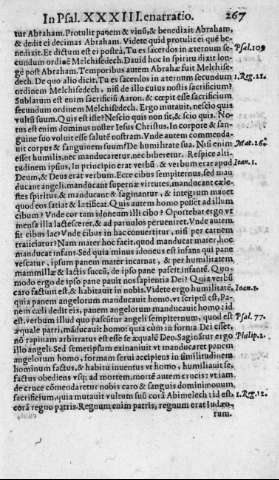 In Psal. XXXIII. enarratio. 267
tur Abraham. Protulit panem & vinũ, & benedixit Abraham,
& dedit ei decimas Abraham. Videte quid protulit et quẽ be-
nedixit. Et dictum est ei postea, Tu es sacerdos in æternum se- Psal. 109
cundum ordinẽ Melchisedech. Dauid hoc in spiritu dixit lon-
gè post Abraham. Temporibus autem Abrahæ fuit Melchise-
dech. De quo alio dicit, Tu es sacerdos in æternum secundum 1. Reg. 21.
ordinem Melchisedech, nisi de illo cuius nostis sacrificium?
Sublatum est ergo sacrificiũ Aaron, & cœpit esse sacrificium
secundum ordinem Melchisedech. Ergo mutauit, nescio quis
vultum suum. Quis est iste? Nescio quis non sit, & scio quis. No
tus est enim dominus noster Iesus Christus. In corpore & san-
guine suo voluit esse salutẽ nostram. Vnde autem commenda-
uit corpus & sanguinem suum? De humilitate sua. Nisi enim Mat. 26.
esset humilis, nec manducaretur, nec biberetur. Respice alti-
tudinem ipsius, In principio erat verbũ & verbum erat apud Ioan. 1.
Deum, & Deus erat verbum. Ecce cibus sempiternus, sed man
ducant angeli, manducant supernæ virtutes, manducant cæle-
stes spiritus, & manducantes & saginantur, & integrum manet
quod eos satiat & lætificat. Quis autem homo posset ad illum
cibum? Vnde cor tam idoneum illi cibo? Oportebat ergo vt
mensa illa lactesceret, & ad paruulos perueniret. Vnde autem
fit cibus lac? Vnde cibus in lac conuertitur, nisi per carnem
traijciatur? Nam mater hoc facit, quod manducat mater, hoc
manducat infans. Sed quia minus idoneus est infans qui pane
vescatur, ipsum panem mater incarnat, & per humilitatem,
mammillæ & lactis succũ, de ipso pane pascit infantẽ. Quo-
modo ergo de ipso pane pauit nos sapientia Dei? Quia verbũ
caro factum est, & habitauit in nobis. Videte ergo humilitatẽ, Ioan. 1.
quia panem angelorum manducauit homo, vt scriptũ est, Pa-
nem cæli dedit eis, panem angelorum manducauit homo, id
est, verbum illud quo pascũtur angeli sempiternum, quod est Psal. 77.
æquale patri, mãducauit homo: quia cùm in forma Dei esset,
nõ rapinam arbitratus est esse se æqualẽ Deo. Saginãtur ergo Philip. 2.
illo angeli. Sed semetipsum exinaniuit vt manducaret panem
angelorum homo, formam serui accipiens in similitudinem
hominum factus, & habitu inuentus vt homo, humiliauit se,
factus obediens vsq; ad mortem, mortẽ autem crucis: vt iam
de cruce cõmendaretur nobis caro & sanguis domini nouum
sacrificiũ, quia mutauit vultum suũ corã Abimelech, id est, 1. Reg. 12.
corã regno patris. Regnum enim patris, regnum erat Iudæo-
rum.